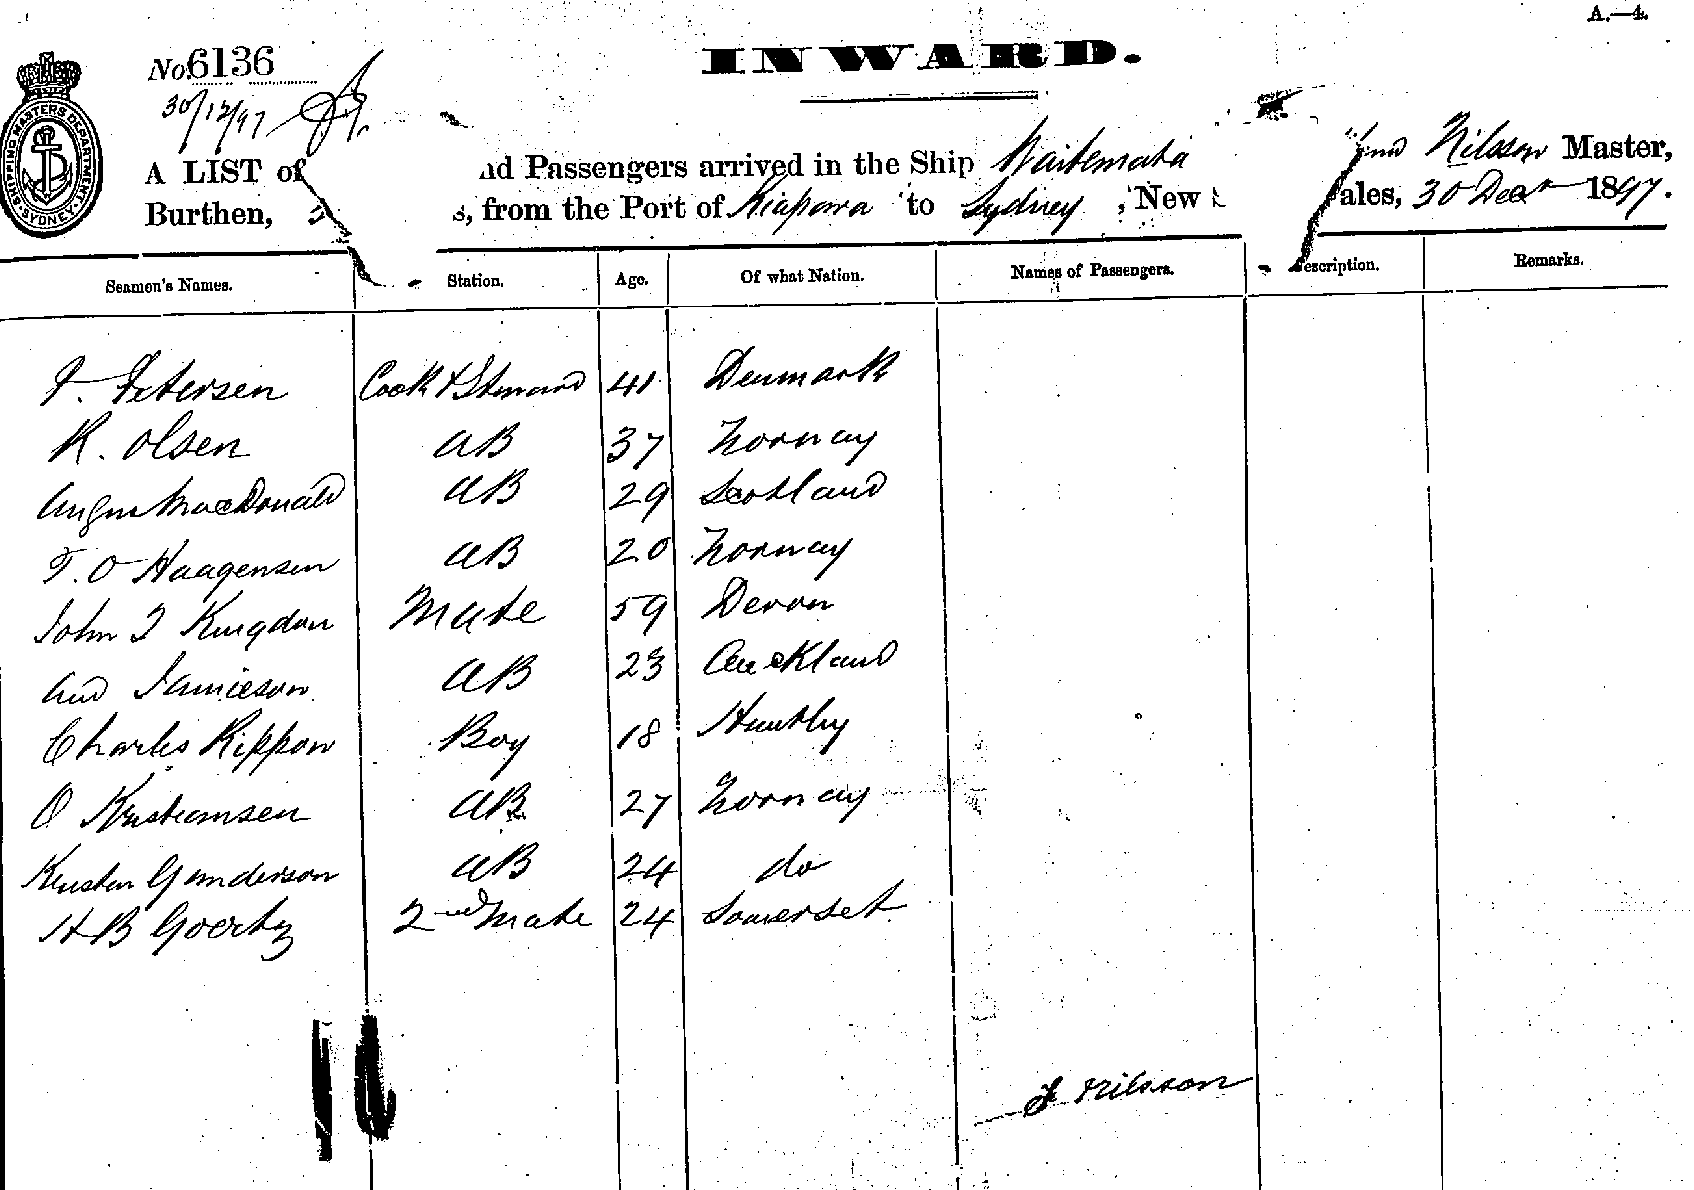 A.—4.
INWARD.
No. 6136
30/12/97
SHIPPING MASTERS DEPARTMENT SYDNEY
A LIST of nd Passengers arrived in the Ship Waitemata Nilsson Master,
Burthen, s, from the Port of Kiapara to Sydney, New ales, 30 Decr 1897.
Seamen's Names. Station. Age. Of what Nation. Names of Passengers. escription. Remarks.
F. Petersen Cook & Steward 41 Denmark
R. Olsen AB 37 Norway
Angus MacDonald AB 29 Scotland
T. O Haagensen AB 20 Norway
John T Kingdon Mate 59 Devon
And Jamieson AB 23 Auckland
Charles Rippon Boy 18 Huntly
O Kristiansen AB 27 Norway
Kristen Gunderson AB 24 do
H B Goertz 2nd Mate 24 Somerset
F Nilsson